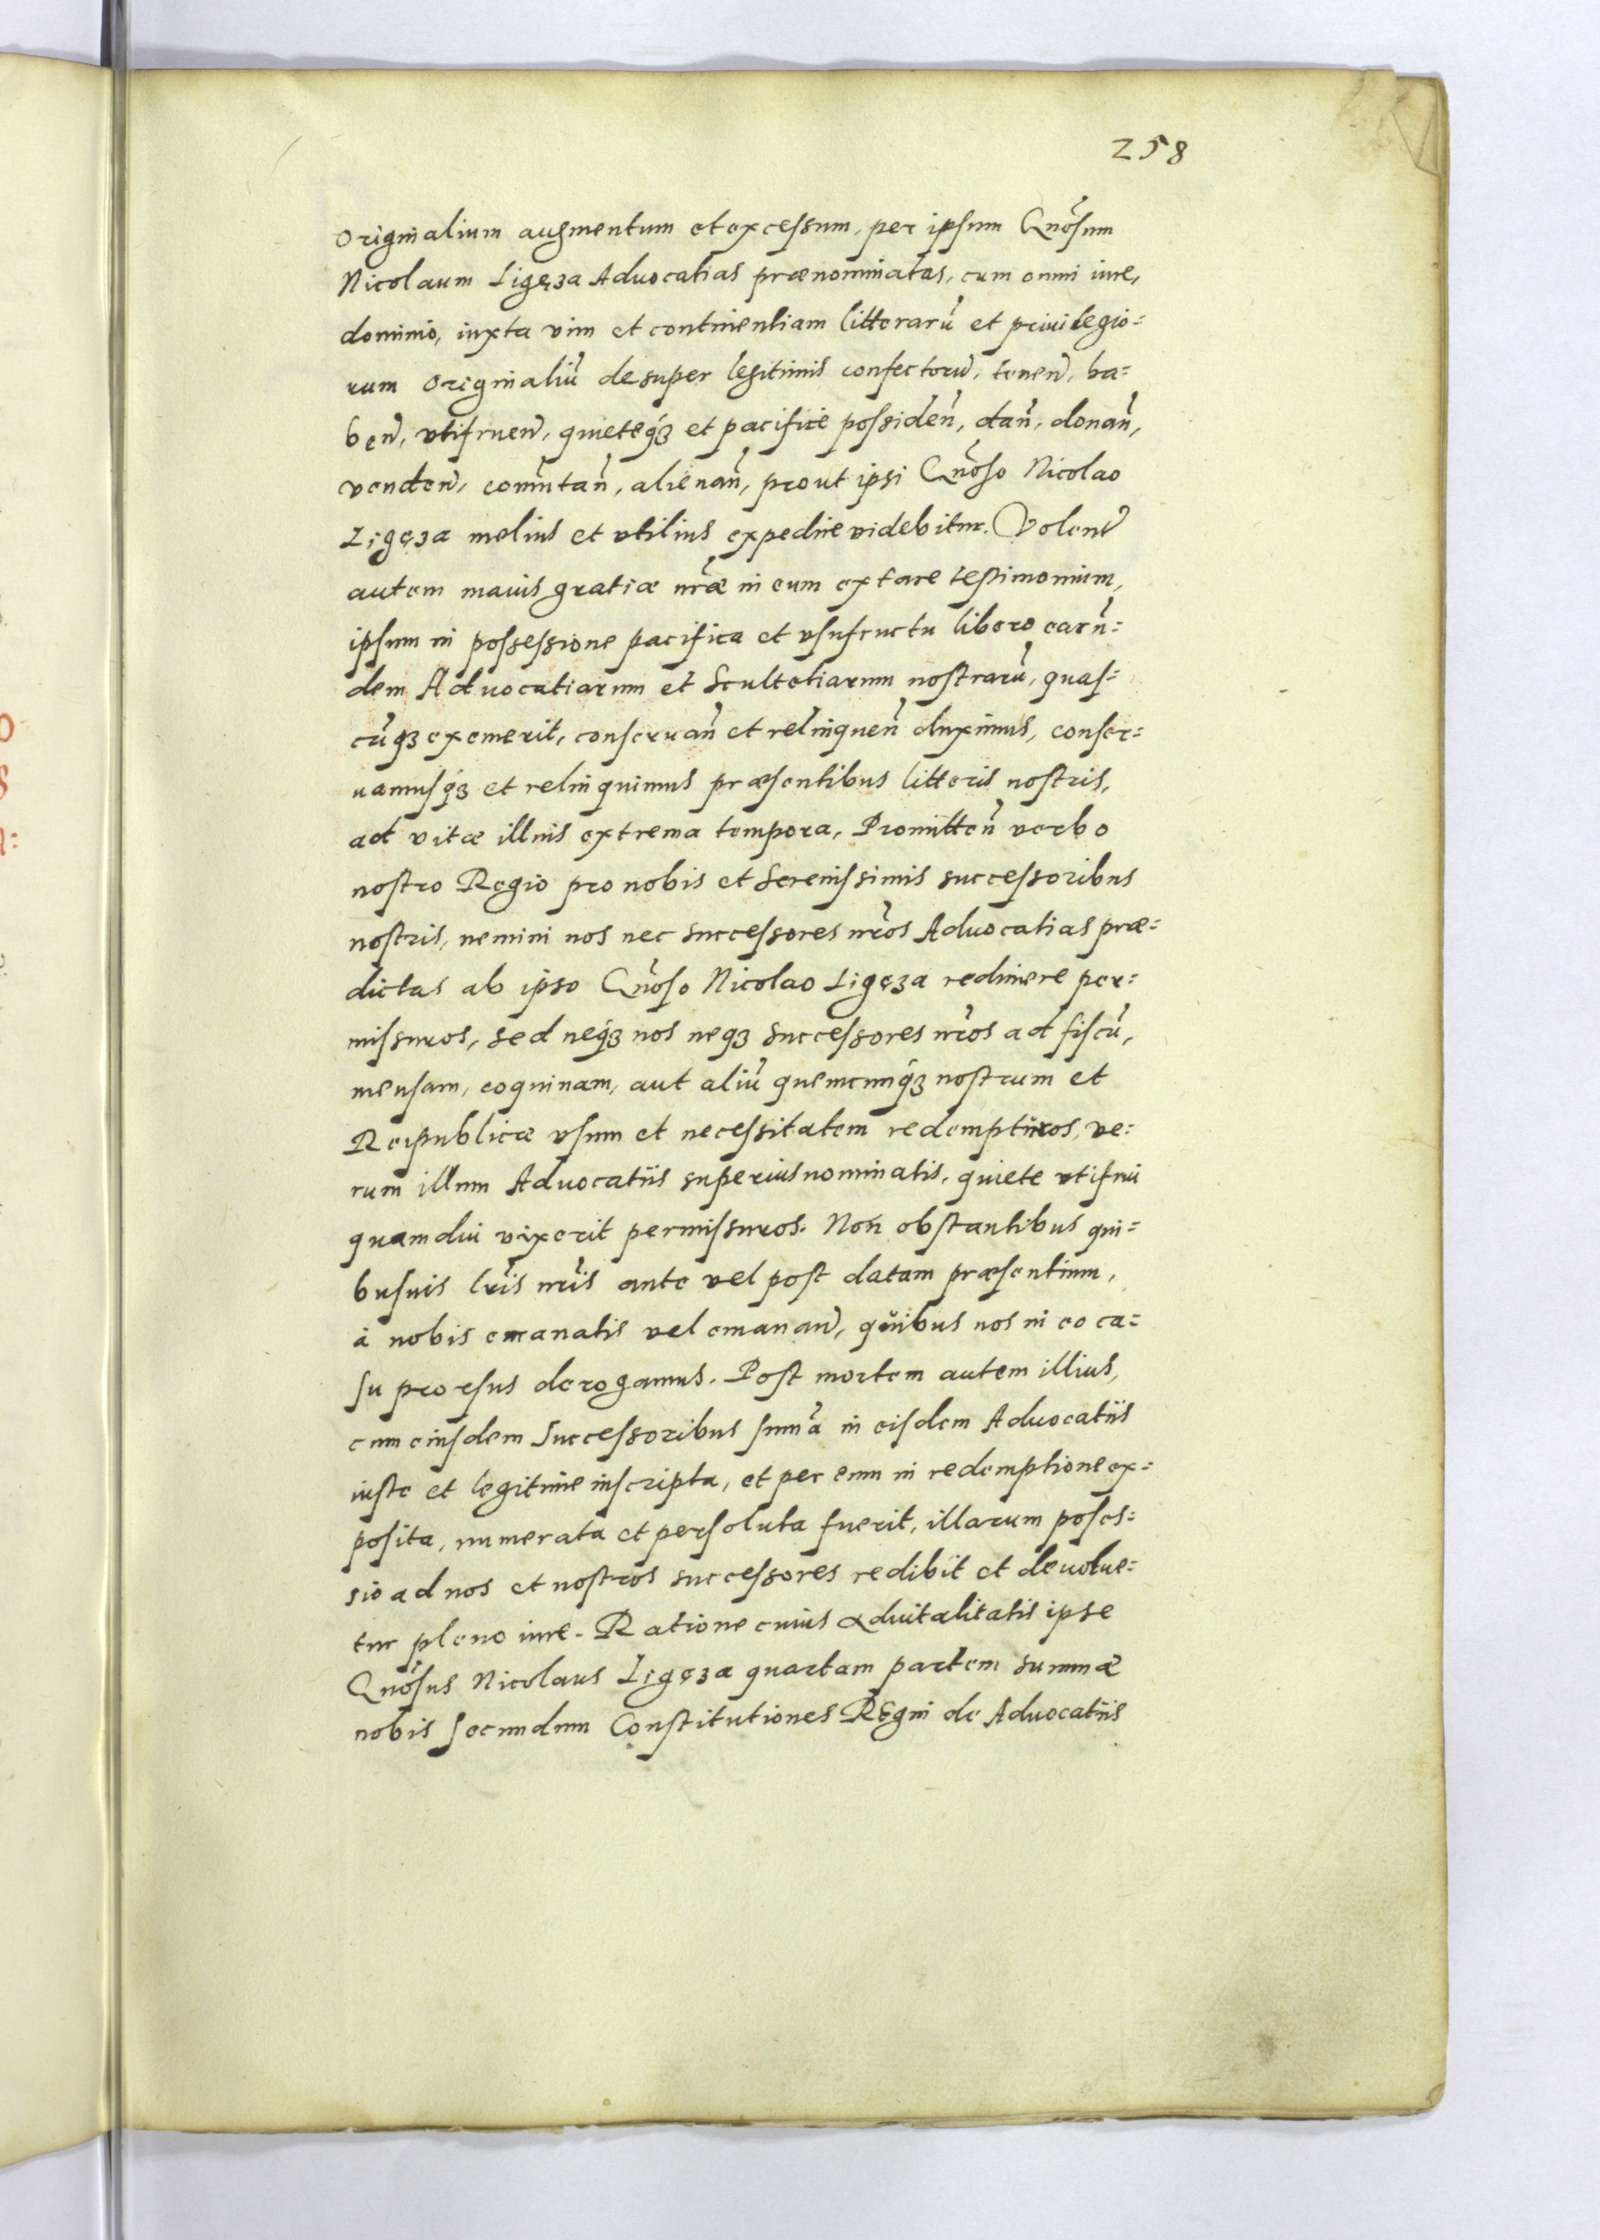 258
originalium augmentum et excessum, per ipsum Gn̄osum
Nicolaum Ligęza Aduocatias prænominatas, cum omni iure,
dominio, iuxta vim et continentiam litterarū et priuilegio=
rum originaliū desuper legitimis confectorū, tenen̄, ha=
ben̄, vtifruen̄, quieteq́ꝫ et pacifice possiden̄, dan̄, donan̄,
venden̄, com̄utan̄, alienan̄, prout ipsi Gn̄oso Nicolao
Ligęza melius et vtilius expedire videbitur. Volen̄
autem maius gratiæ nr̄æ in eum extare testimonium,
ipsum in possessione pacifica et vsufructu libero earū=
dem Aduocatiarum et Scultetiarum nostrarū, quas=
cūqꝫ exemerit, conseruan̄ et relinquen̄ duximus, conser=
uamusq́ꝫ et relinquimus præsentibus litteris nostris,
ad vitæ illius extrema tempora, Promitten̄ verbo
nostro Regio pro nobis et Serenissimis successoribus
nostris, nemini nos nec successores nr̄os Aduocatias præ=
dictas ab ipso Gn̄oso Nicolao Ligęza redimere per=
missuros, sed neq́ꝫ nos neqꝫ successores nr̄os ad fiscū,
mensam, coquinam, aut aliū quemcunq́ꝫ nostrum et
Reipublicæ vsum et necessitatem redempturos, ve=
rum illum Aduocatiis superius nominatis, quiete vtifrui
quamdiu vixerit permissuros. Non obstantibus qui=
busuis lr̄is nr̄is ante vel post datam præsentium,
à nobis emanatis vel emanan̄, quibus nos in eo ca=
su prorsus derogamus. Post mortem autem illius,
cum eiusdem successoribus sum̄a in eisdem Aduocatiis
iuste et legitime inscripta, et per eum in redemptione ex=
posita, numerata et persoluta fuerit, illarum poses=
sio ad nos et nostros successores redibit et deuolue=
tur pleno iure. Ratione cuius aduitalitatis ipse
Gn̄osus Nicolaus Ligęza quartam partem summæ
nobis secundum Constitutiones Regni de Aduocatiis